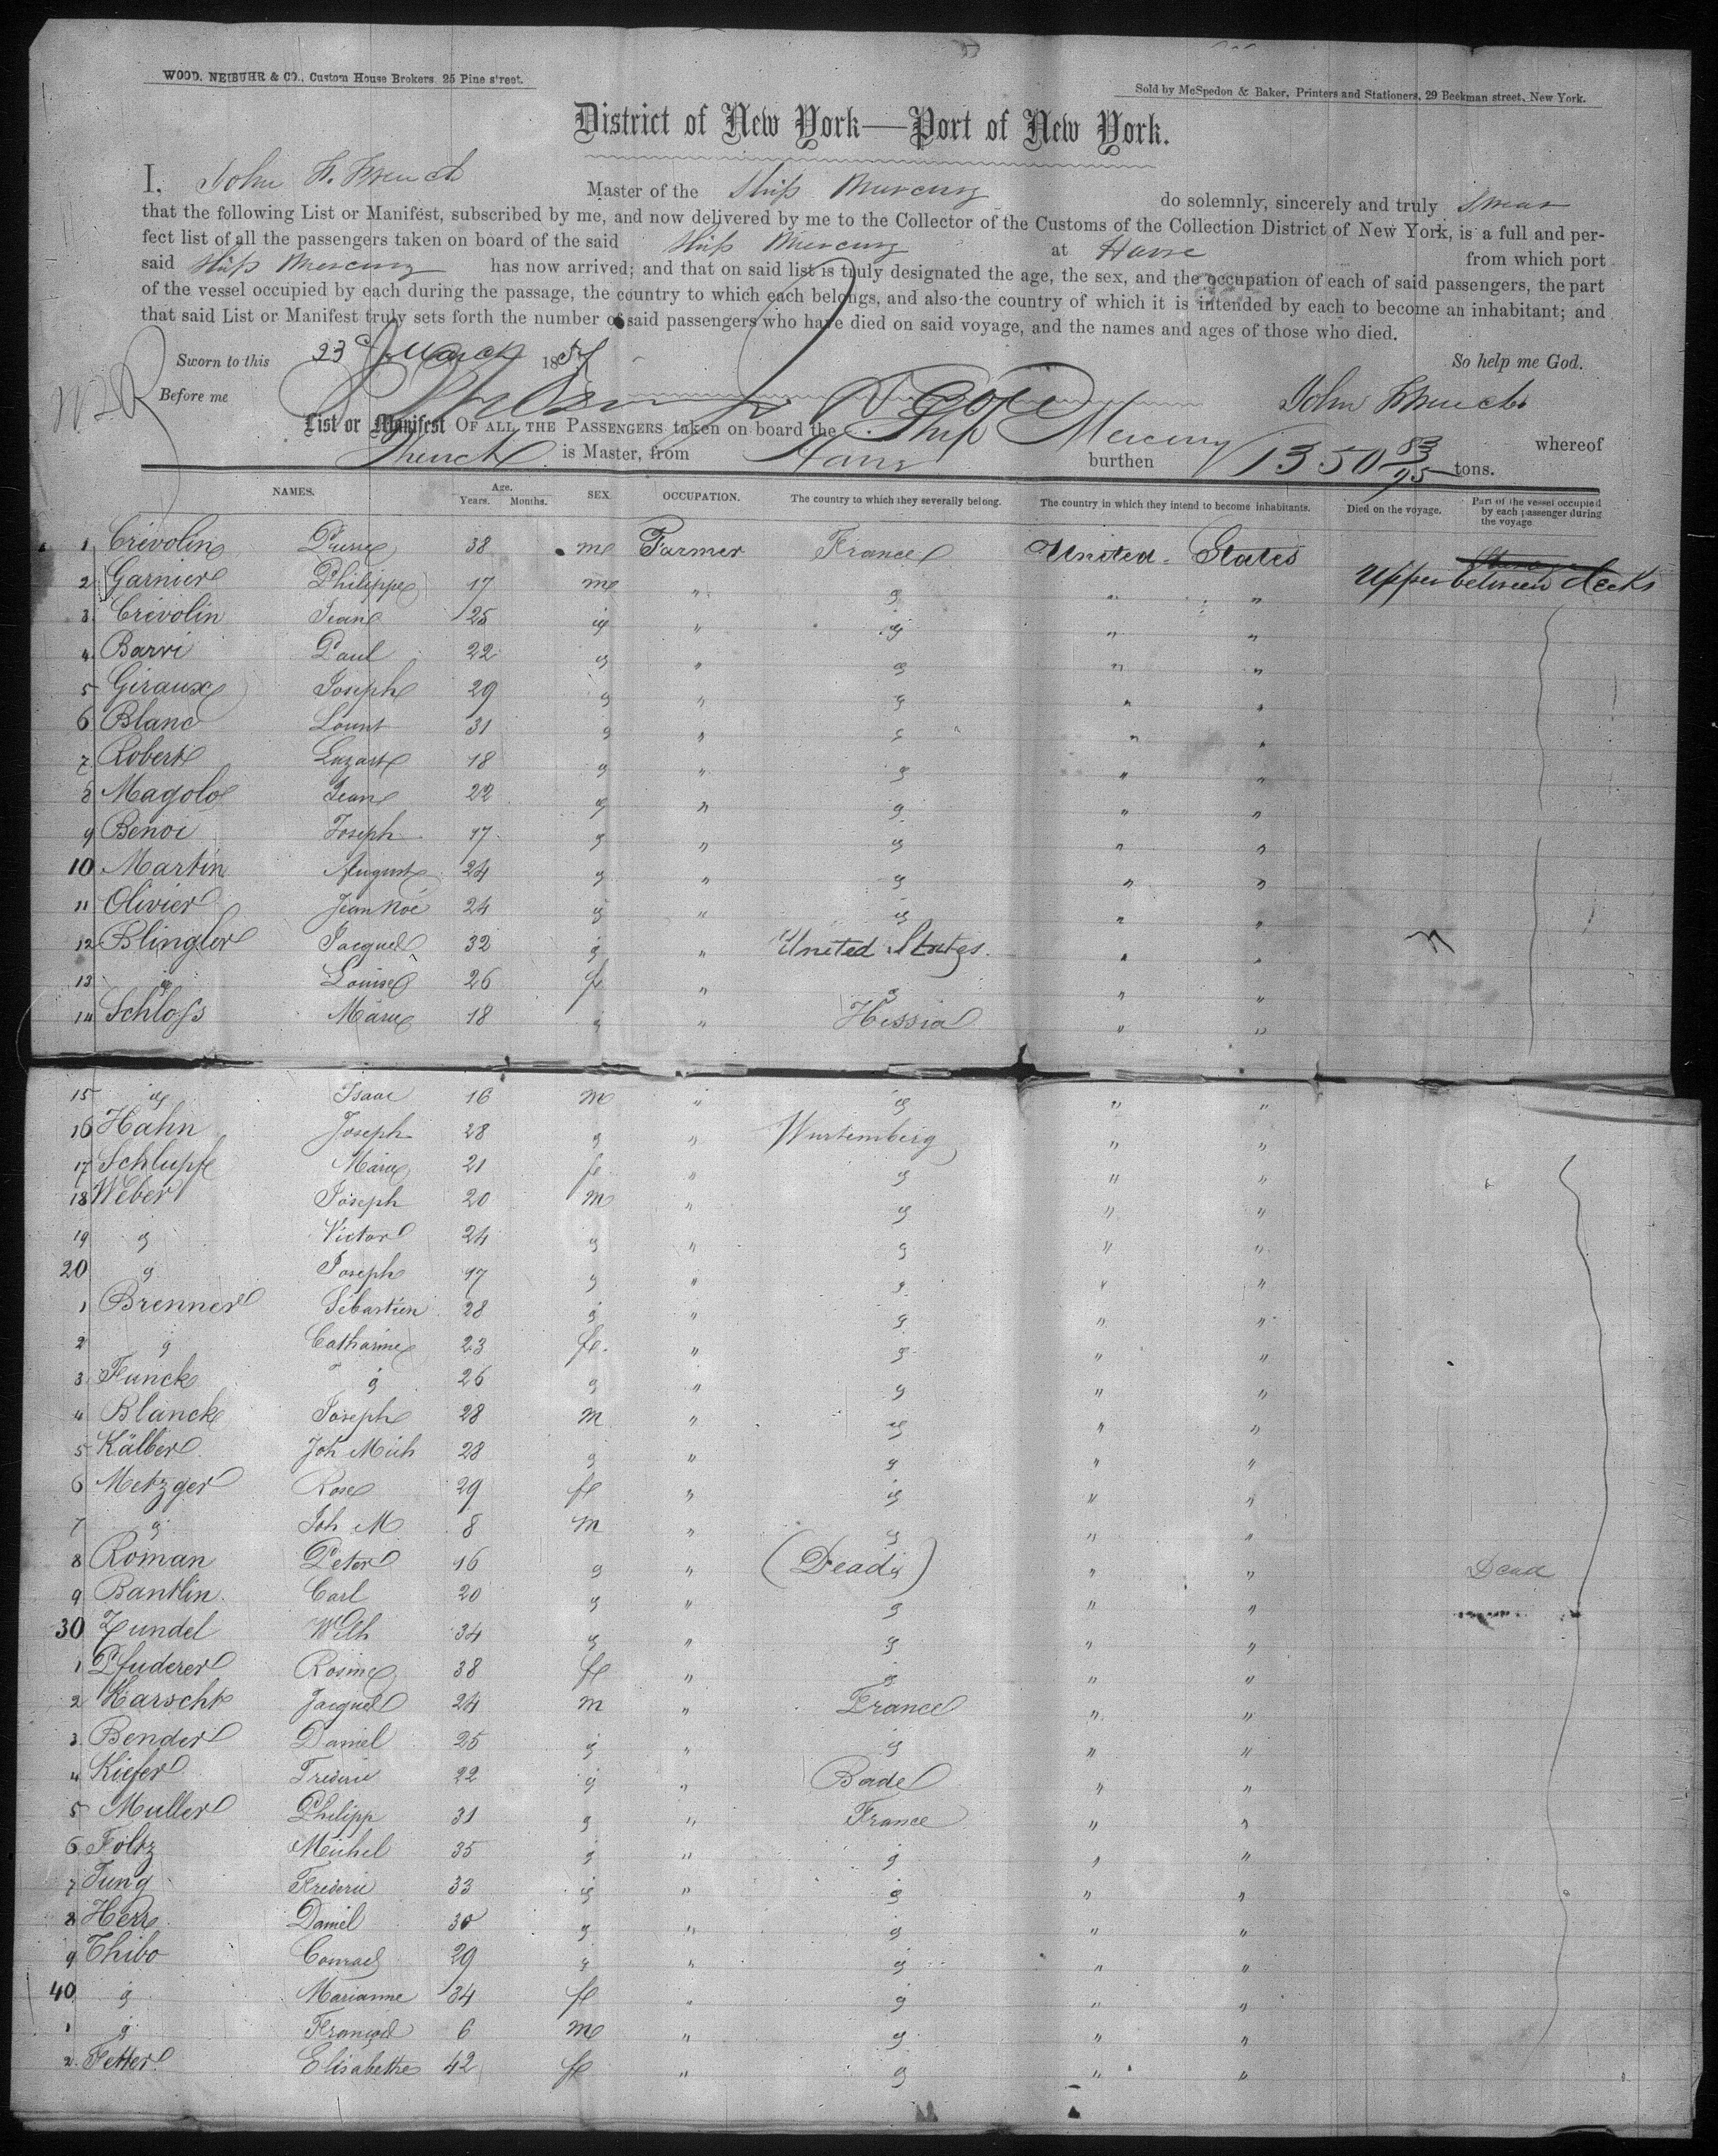 WOOD, NEIBUHR & CO., Custom House Brokers, 25 Pine street.
Sold by McSpedon & Baker, Printers and Stationers, 29 Beekman street, New York.
District of New York—Port of New York.
I, John Master of the Ship Mercury do solemnly, sincerely and truly swear
that the following List or Manifest, subscribed by me, and now delivered by me to the Collector of the Customs of the Collection District of New York, is a full and per-
fect list of all the passengers taken on board of the said Ship Mercury at Havre from which port
said Ship Mercury has now arrived; and that on said list is truly designated the age, the sex, and the occupation of each of said passengers, the part
of the vessel occupied by each during the passage, the country to which each belongs, and also the country of which it is intended by each to become an inhabitant; and
that said List or Manifest truly sets forth the number of said passengers who have died on said voyage, and the names and ages of those who died.
Sworn to this 23d March 185 So help me God.
Before me John
List or Manifest OF ALL THE PASSENGERS taken on board the Ship Mercury whereof
French is Master, from Havre burthen 1350 83/95 tons.
NAMES. Age. Years. Months. SEX. OCCUPATION. The country to which they severally belong. The country in which they intend to become inhabitants. Died on the voyage. Part of the vessel occupied by each passenger during the voyage
1 Crévolin Pierre 38 m Farmer France United States
2 Garnier Philippe 17 m " g " " Upper between decks
3 Crévolin Jean 25 g " g " "
4 Barri Paul 22 g " g " "
5 Giraux Joseph 29 g " g " "
6 Blanc 31 g " g " "
7 Robert 18 g " g " "
8 Magolo Jean 22 g " g " "
9 Benoi Joseph 17 g " g " "
10 Martin August 24 g " g " "
11 Olivier Jean Noé 24 g " g " "
12 Blingler Jacques 32 g " United States " "
13 g Louise 26 f " g " "
14 Schloss Marie 18 g " Hessia " "
15 g Isaac 16 m " g " "
16 Hahn Joseph 28 g " Wurtemberg " "
17 Schlupf Marie 21 f " g " "
18 Weber Joseph 20 m " g " "
19 g Victor 24 g " g " "
20 g Joseph 17 g " g " "
1 Brenner Sébastien 28 g " g " "
2 g Catharine 23 f. " g " "
3 Funck g 26 g " g " "
4 Blanck Joseph 28 m " g " "
5 Kälber Joh Mich 28 g " g " "
6 Metzger Rose 29 f " g " "
7 g Joh M 8 m " g " "
8 Roman Peter 16 g " (Dead g) " " Dead
9 Bantlin Carl 20 g " g " "
30 Zundel Wilh 34 g " g " "
1 Pfuderer Rosine 38 f " g " "
2 Karscht Jacques 24 m " France " "
3 Bender Daniel 25 g " g " "
4 Kiefer Frédéric 22 g " Bade " "
5 Muller Philipp 31 g " France " "
6 Foltz Michel 35 g " g " "
7 Jung Frédéric 33 g " g " "
8 Herr Daniel 30 g " g " "
9 Thibo Conrad 29 g " g " "
40 g Marianne 34 f " g " "
1 g François 6 m " g " "
2 Fetter Elisabethe 42 f " g " "